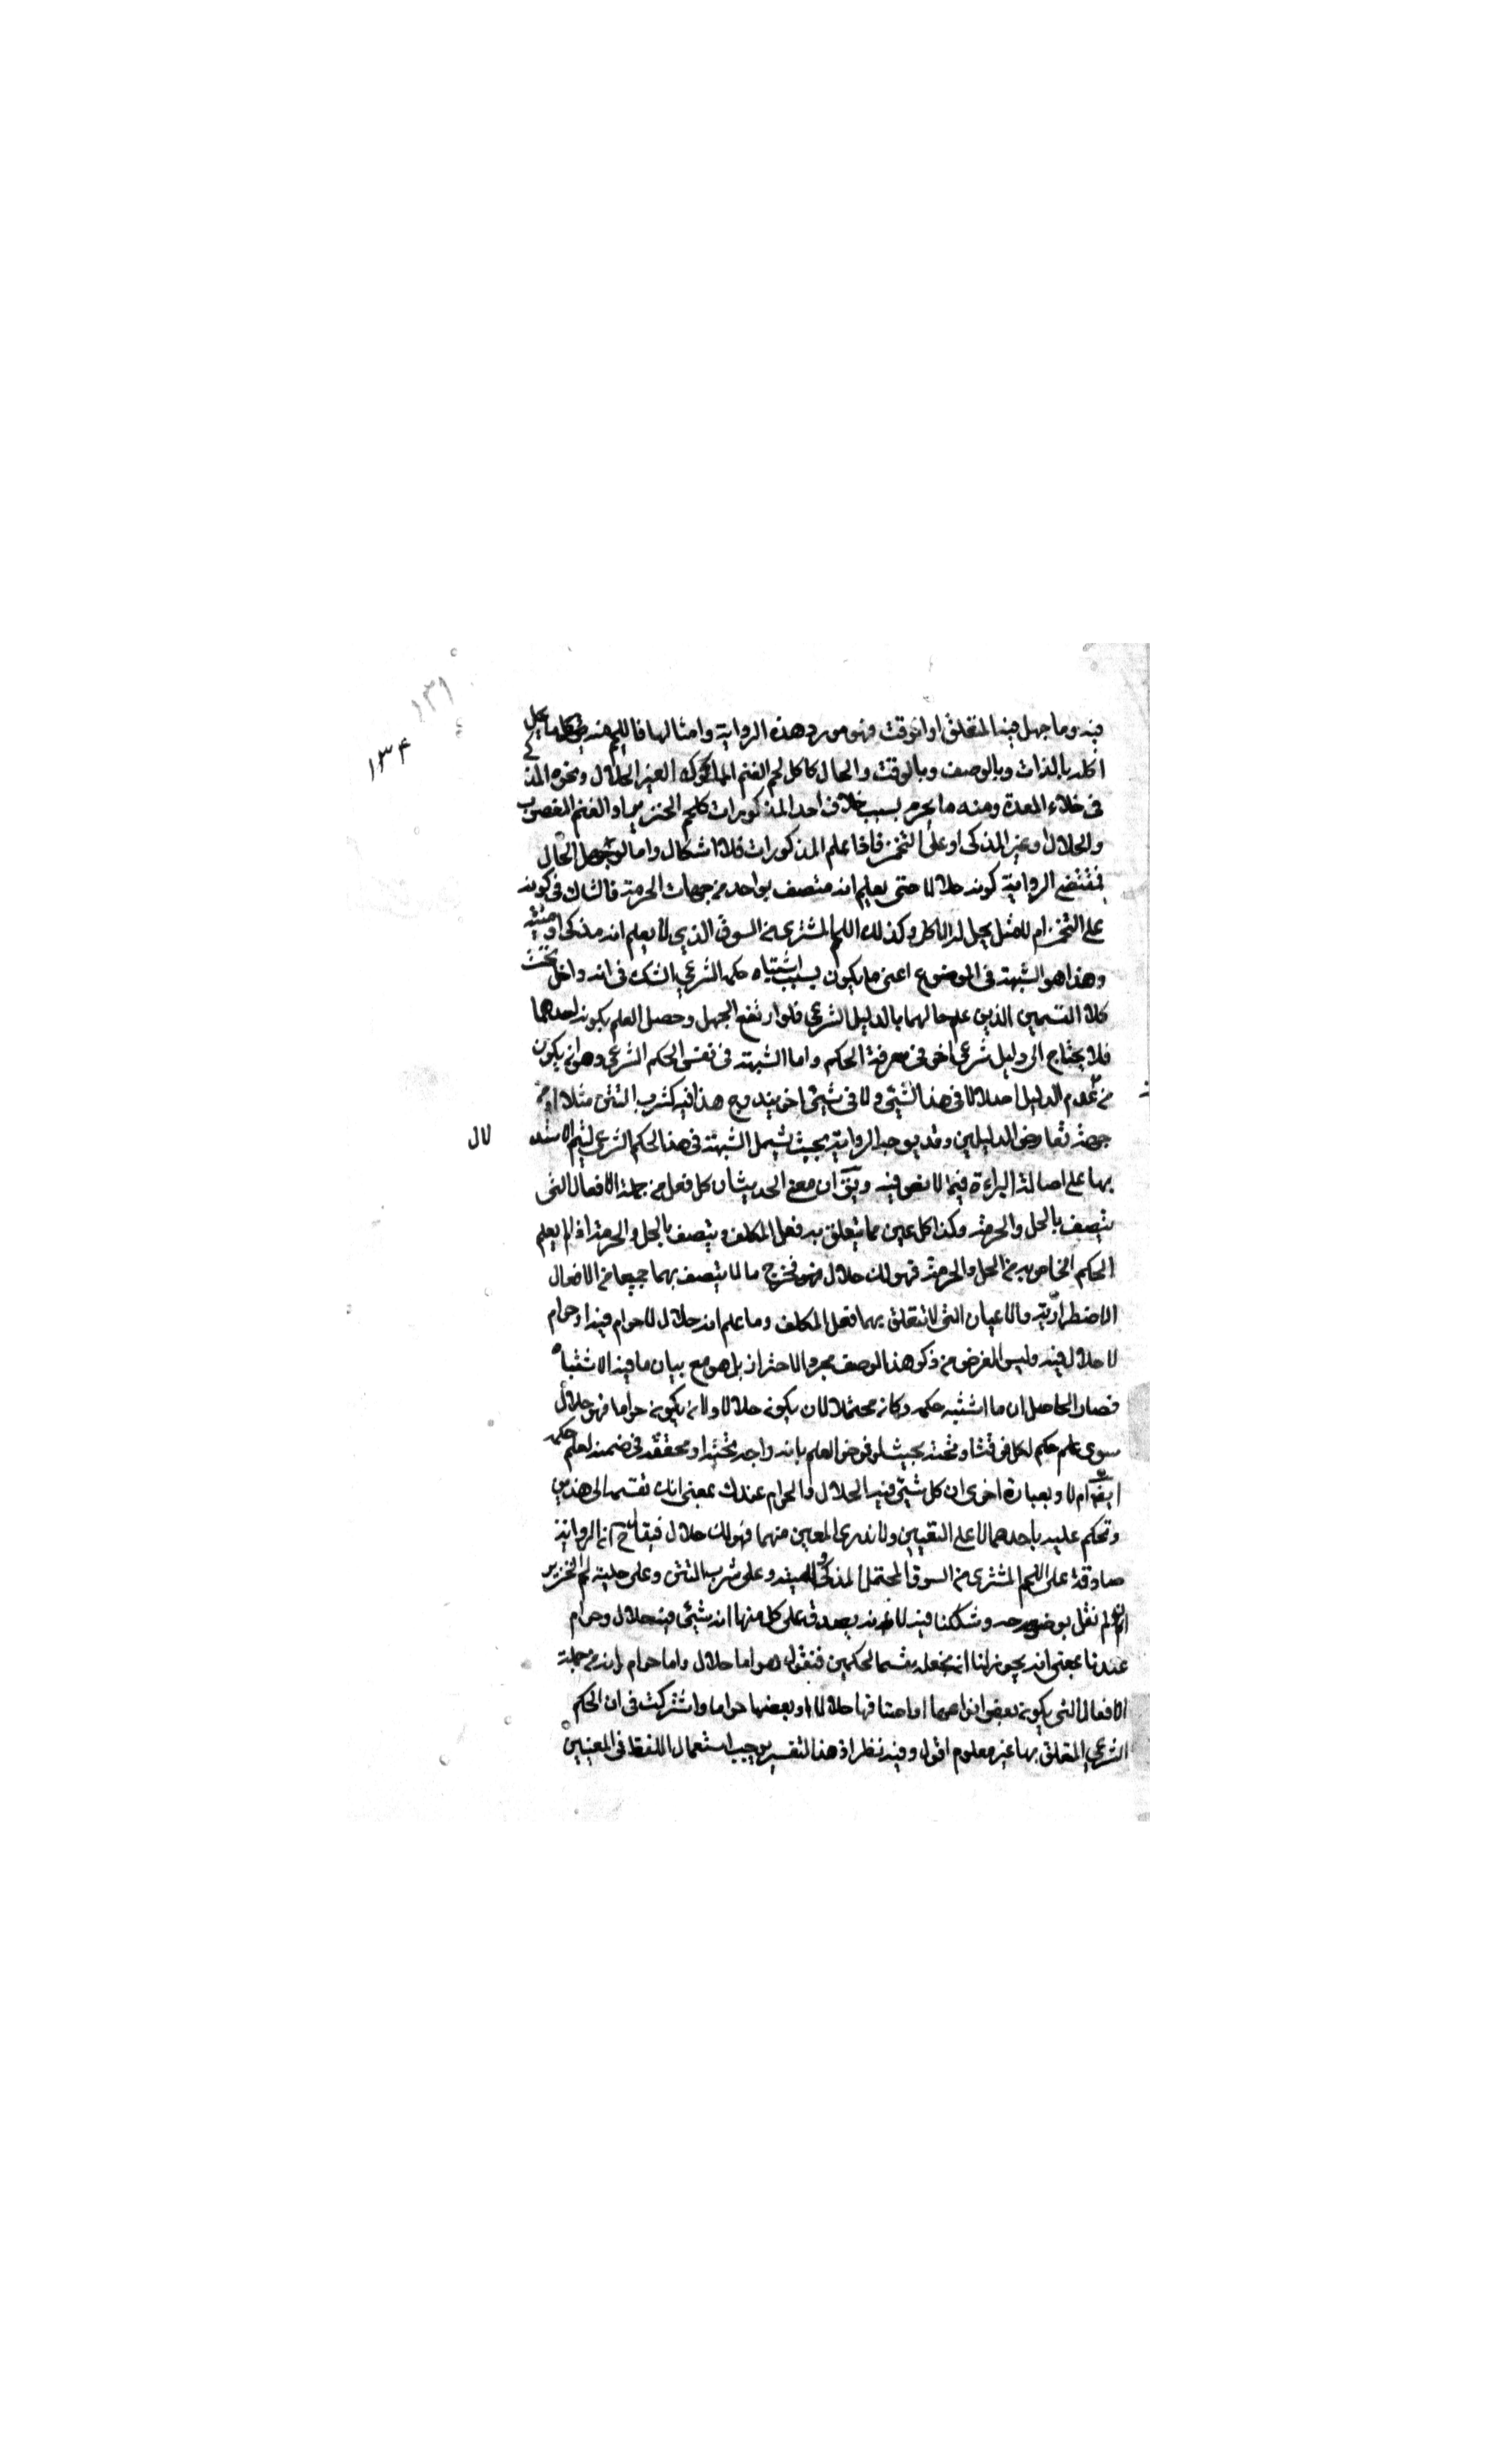 ۱۳۱
۱۳۴
فيه وما جهل فيه المتعلق او الوقت فهو مورد هذه الرواية وامثالها فاللحم منه ما يحل
اكله بالذات وبالوصف وبالوقت والحال كاكل لحم الغنم المملوك الغير الجلال ونحوه المذكى
فى خلاء المعدة ومنه ما يحرم بسبب خلاف احد المذكورات كلحم الخنزير او الغنم المغصوب
والجلال وغير المذكى او على التخمة فاذا علم المذكورات فلا اشكال واما لو جهل الحال
فمقتضى الرواية كونه حلالا حتى يعلم انه متصف بواحد من جهات الحرمة فالشاك فى كونه
على التخمة ام لا مثل يحل له الاكل وكذلك اللحم المشترى من السوق الذي لا يعلم انه مذكى او ميتة
وهذا هو الشبهة فى الموضوع اعنى ما يكون بسبب اشتباه حكمه الشرعي الشك فى انه داخل تحت
كلا القسمين الذين علم حالهما بالدليل الشرعي فلو ارتفع الجهل وحصل العلم بكونه احدهما
فلا يحتاج الى دليل شرعي اخر فى معرفة الحكم واما الشبهة فى نفس الحكم الشرعي وهو ان يكون
من عدم الدليل اصلا لا فى هذا الشيء ولا فى شيء اخر يندرج هذا فيه كشرب التتن مثلا او من
جهة تعارض الدليلين وقد يوجه الرواية بحيث يشمل الشبهة فى هذا الحكم الشرعي ليتم الاستد لال
بها على اصالة البراءة فيما لا نص فيه ويق ان معنى الحديث ان كل فعل من جملة الافعال التى
يتصف بالحل والحرمة وكذا كل عين مما يتعلق به فعل المكلف ويتصف بالحل والحرمة اذا لم يعلم
الحكم الخاص به من الحل والحرمة فهو لك حلال فخرج ما لا يتصف بهما جميعا من الافعال
الاضطرارية والاعيان التى لا تتعلق بهما فعل المكلف وما علم انه حلال لا حرام فيه او حرام
لا حلال فيه وليس الغرض من ذكر هذا الوصف مجرد الاحتراز بل هو مع بيان ما فيه الاشتباه
فصار الحاصل ان ما اشتبه حكمه وكان محتملا لان يكون حلالا ولان يكون حراما فهو حلال
سوى علم حكم لكل فوقه او تحته بحيث لو فرض العلم باندراجه تحته او تحققه فى ضمنه لعلم حكمه
ايضا ام لا وبعبارة اخرى ان كل شيء فيه الحلال والحرام عندك بمعنى انك تقسمه الى هذين
وتحكم عليه باحدهما لا على التعيين ولا تدرى المعين منهما فهو لك حلال فيقال ح ان الرواية
صادقة على اللحم المشترى من السوق المحتمل للمذكى والميتة وعلى شرب التتن وعلى حلية لحم الخنزير
ان لم نقل بوضوحه وشككنا فيه لانه يصدق على كل منها انه شيء فيه حلال وحرام
عندنا بمعنى انه يجوز لنا ان نجعله مقسما لحكمين فنقول هو اما حلال واما حرام وانه من جملة
الافعال التى يكون بعض انواعها او اصنافها حلالا وبعضها حراما واشتركت فى ان الحكم
الشرعي المتعلق بها غير معلوم اقول وفيه نظر اذ هذا التفسير يوجب استعمال اللفظ فى المعنيين